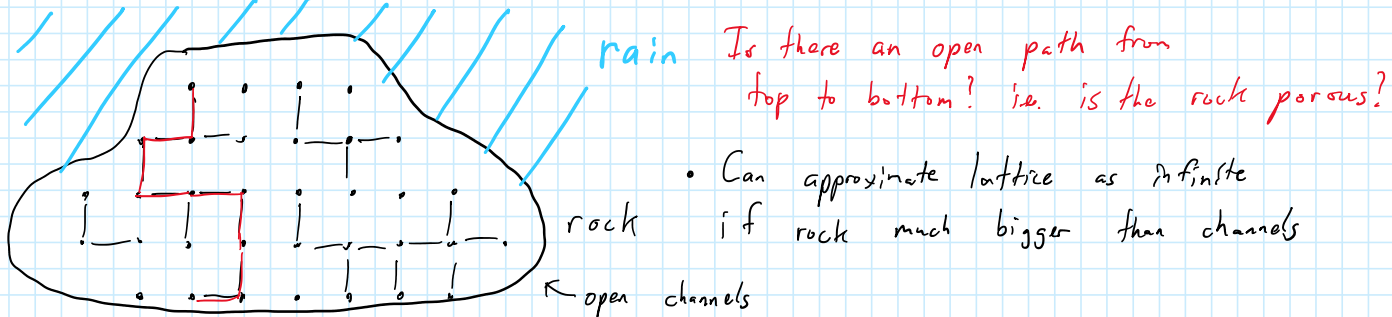 rain
Is there an open path from
top to bottom? i.e. is the rock porous?
• Can approximate lattice as infinite
if rock much bigger than channels
rock
open channels